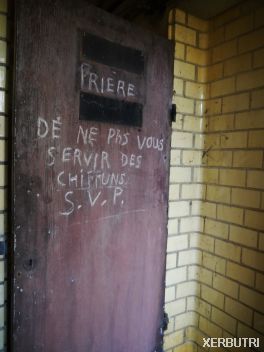 PRIÈRE
DÉ NE PAS VOUS
SERVIR DES
CHIFFUNS.
S. V. P.
XERBUTRI